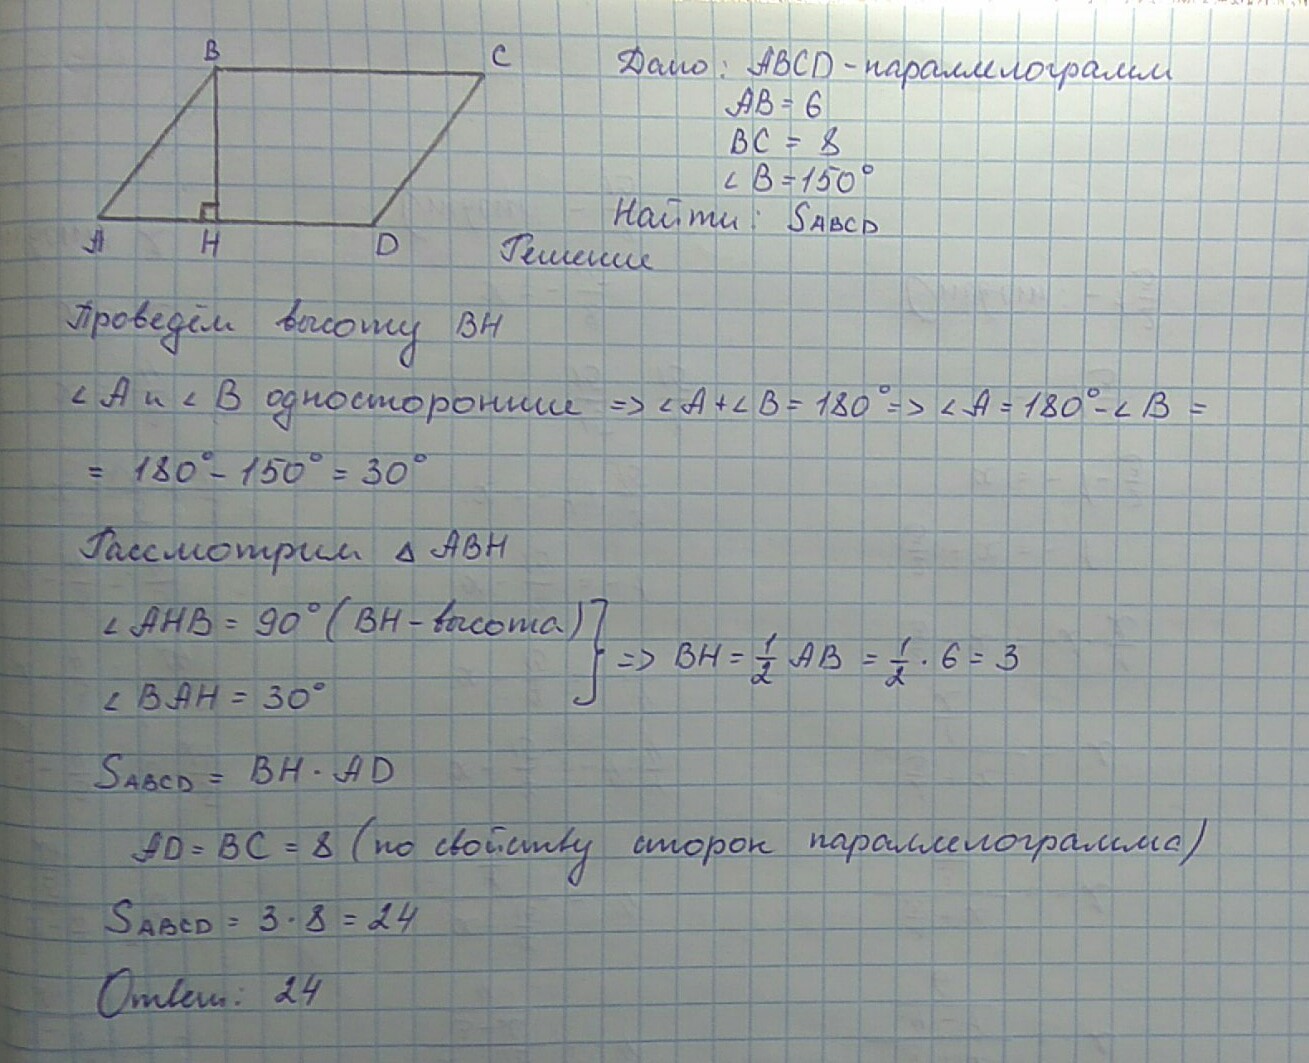 B C
A H D
Дано: ABCD - параллелограмм
AB = 6
BC = 8
∠ B = 150°
Найти: SABCD
Решение
Проведём высоту BH
∠ A и ∠ B односторонние => ∠ A + ∠ B = 180° => ∠ A = 180° - ∠ B =
= 180° - 150° = 30°
Рассмотрим △ ABH
∠ AHB = 90° (BH - высота)
∠ BAH = 30°
=> BH = 1/2 AB = 1/2 · 6 = 3
SABCD = BH · AD
AD = BC = 8 (по свойству сторон параллелограмма)
SABCD = 3 · 8 = 24
Ответ: 24